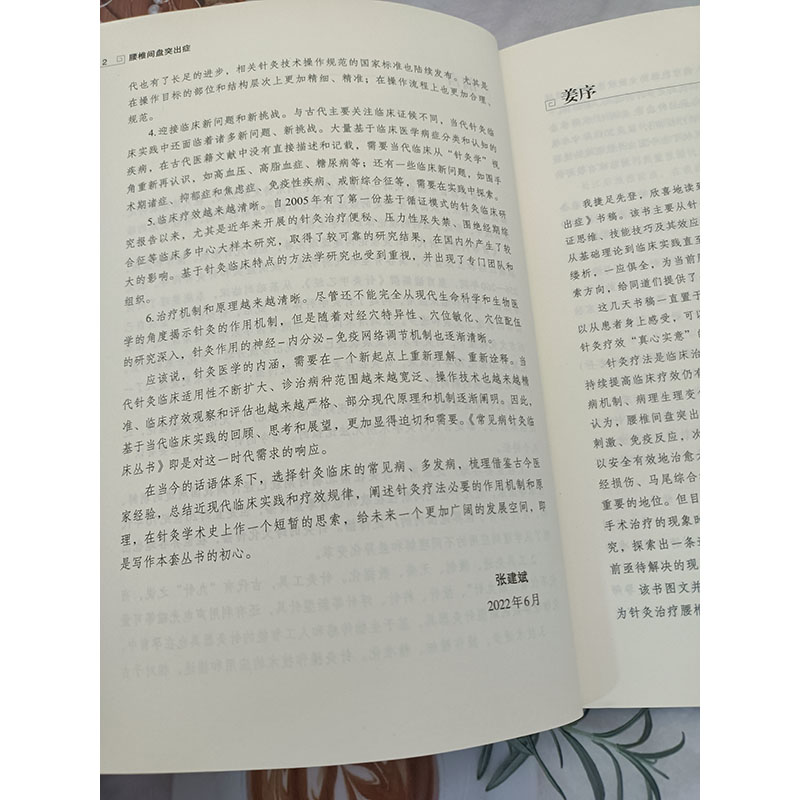 2 腰椎间盘突出症
代也有了长足的进步，相关针灸技术操作规范的国家标准也陆续发布。尤其是
在操作目标的部位和结构层次上更加精细、精准；在操作流程上也更加合理、
规范。
4.迎接临床新问题和新挑战。与古代主要关注临床证候不同，当代针灸临
床实践中还面临着诸多新问题、新挑战。大量基于临床医学病症分类和认知的
疾病，在古代医籍文献中没有直接描述和记载，需要当代临床从“针灸学”视
角重新再认识，如高血压、高脂血症、糖尿病等；还有一些临床新问题，如围手
术期诸症、抑郁症和焦虑症、免疫性疾病、戒断综合征等，需要在实践中探索。
5.临床疗效越来越清晰。自2005年有了第一份基于循证模式的针灸临床研
究报告以来，尤其是近年来开展的针灸治疗便秘、压力性尿失禁、围绝经期综
合征等临床多中心大样本研究，取得了较可靠的研究结果，在国内外产生了较
大的影响。基于针灸临床特点的方法学研究也受到重视，并出现了专门团队和
组织。
6.治疗机制和原理越来越清晰。尽管还不能完全从现代生命科学和生物医
学的角度揭示针灸的作用机制，但是随着对经穴特异性、穴位敏化、穴位配伍
的研究深入，针灸作用的神经-内分泌-免疫网络调节机制也逐渐清晰。
应该说，针灸医学的内涵，需要在一个新起点上重新理解、重新诠释。当
代针灸临床适用性不断扩大、诊治病种范围越来越宽泛、操作技术也越来越精
准、临床疗效观察和评估也越来越严格、部分现代原理和机制逐渐阐明。因此，
基于当代临床实践的回顾、思考和展望，更加显得迫切和需要。《常见病针灸临
床丛书》即是对这一时代需求的响应。
在当今的话语体系下，选择针灸临床的常见病、多发病，梳理借鉴古今医
家经验，总结近现代临床实践和疗效规律，阐述针灸疗法必要的作用机制和原
理，在针灸学术史上作一个短暂的思索，给未来一个更加广阔的发展空间，即
是写作本套丛书的初心。
张建斌
2022年6月
姜序
我捷足先登，欣喜地读到
出症》书稿。该书主要从针
证思维、技能技巧及其效应
从基础理论到临床实践直至
缕析，一应俱全，为当前
索方向，给同道们提供了
这几天书稿一直置于
以从患者身上感受，可以
针灸疗效“真心实意”的
针灸疗法是临床治
持续提高临床疗效仍有
病机制、病理生理变
认为，腰椎间盘突出
刺激、免疫反应，次
以安全有效地治愈大
经损伤、马尾综合
重要的地位。但目
手术治疗的现象时
究，探索出一条
前亟待解决的现
该书图文并
为针灸治疗腰椎